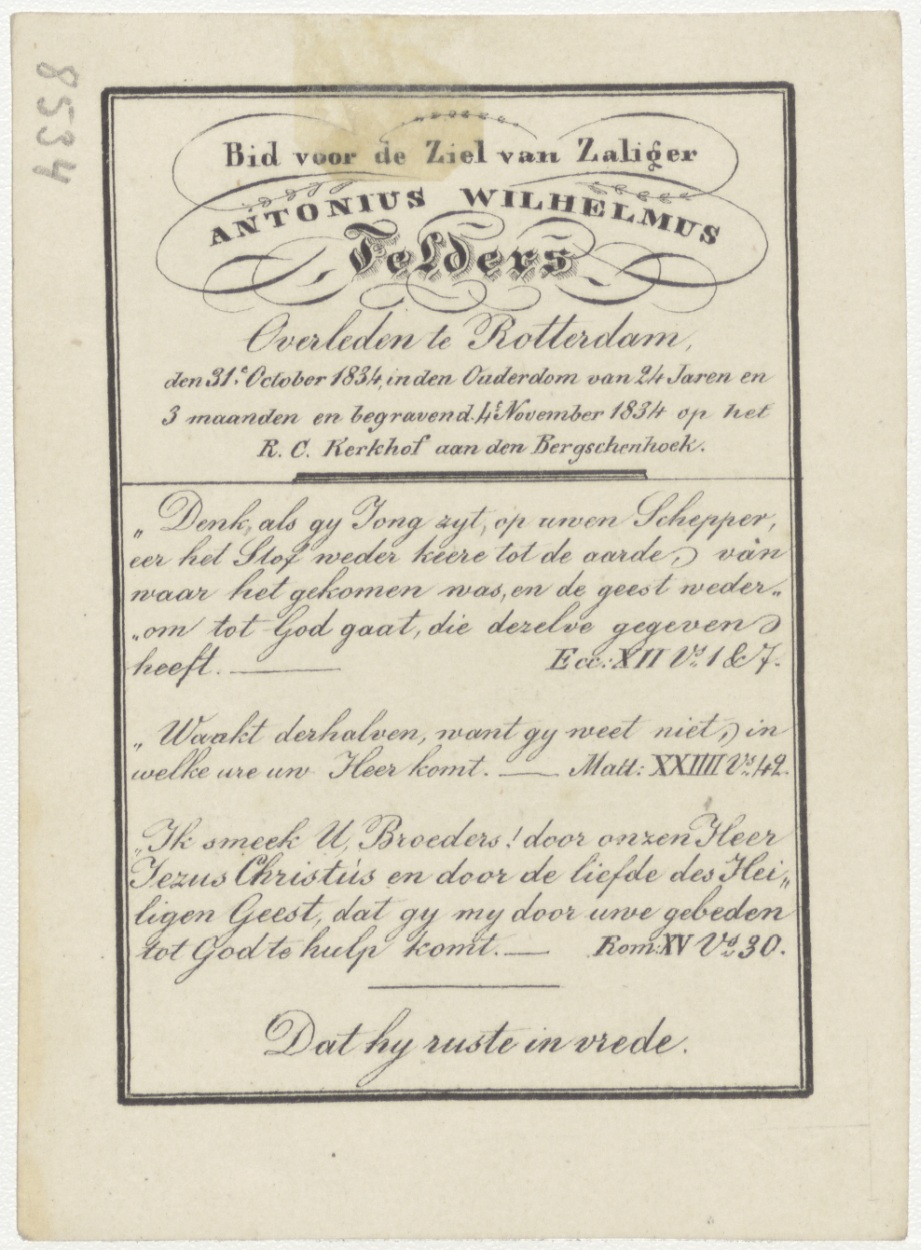 8534
Bid voor de Ziel van Zaliger
ANTONIUS WILHELMUS
Felders
Overleden te Rotterdam,
den 31e October 1834, in den Ouderdom van 24 Jaren en
3 maanden en begraven d. 4e November 1834 op het
R. C. Kerkhof aan den Bergschenhoek.
„ Denk, als gy Jong zyt, op uwen Schepper,
eer het Stof weder keere tot de aarde, van
waar het gekomen was, en de geest weder„
„om tot God gaat, die dezelve gegeven
heeft. — Ecc: XII Vs. 1 & 7.
„ Waakt derhalven, want gy weet niet, in
welke ure uw Heer komt. — Matt: XXIIII Vs. 42.
„Ik smeek U, Broeders! door onzen Heer
Jezus Christus en door de liefde des Hei„
ligen Geest, dat gy my door uwe gebeden
tot God te hulp komt. — Rom: XV Vs. 30.
Dat hy ruste in vrede.